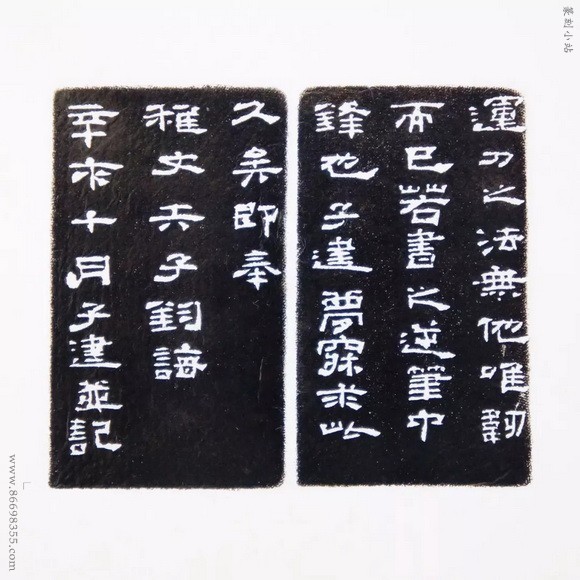 運刀之法無他唯韌
而已若書之逆筆中
鋒也子建夢寐求此
久矣即奉
雅丈子鈞誨
辛未十月子建並記
篆刻小站
www.86698355.com